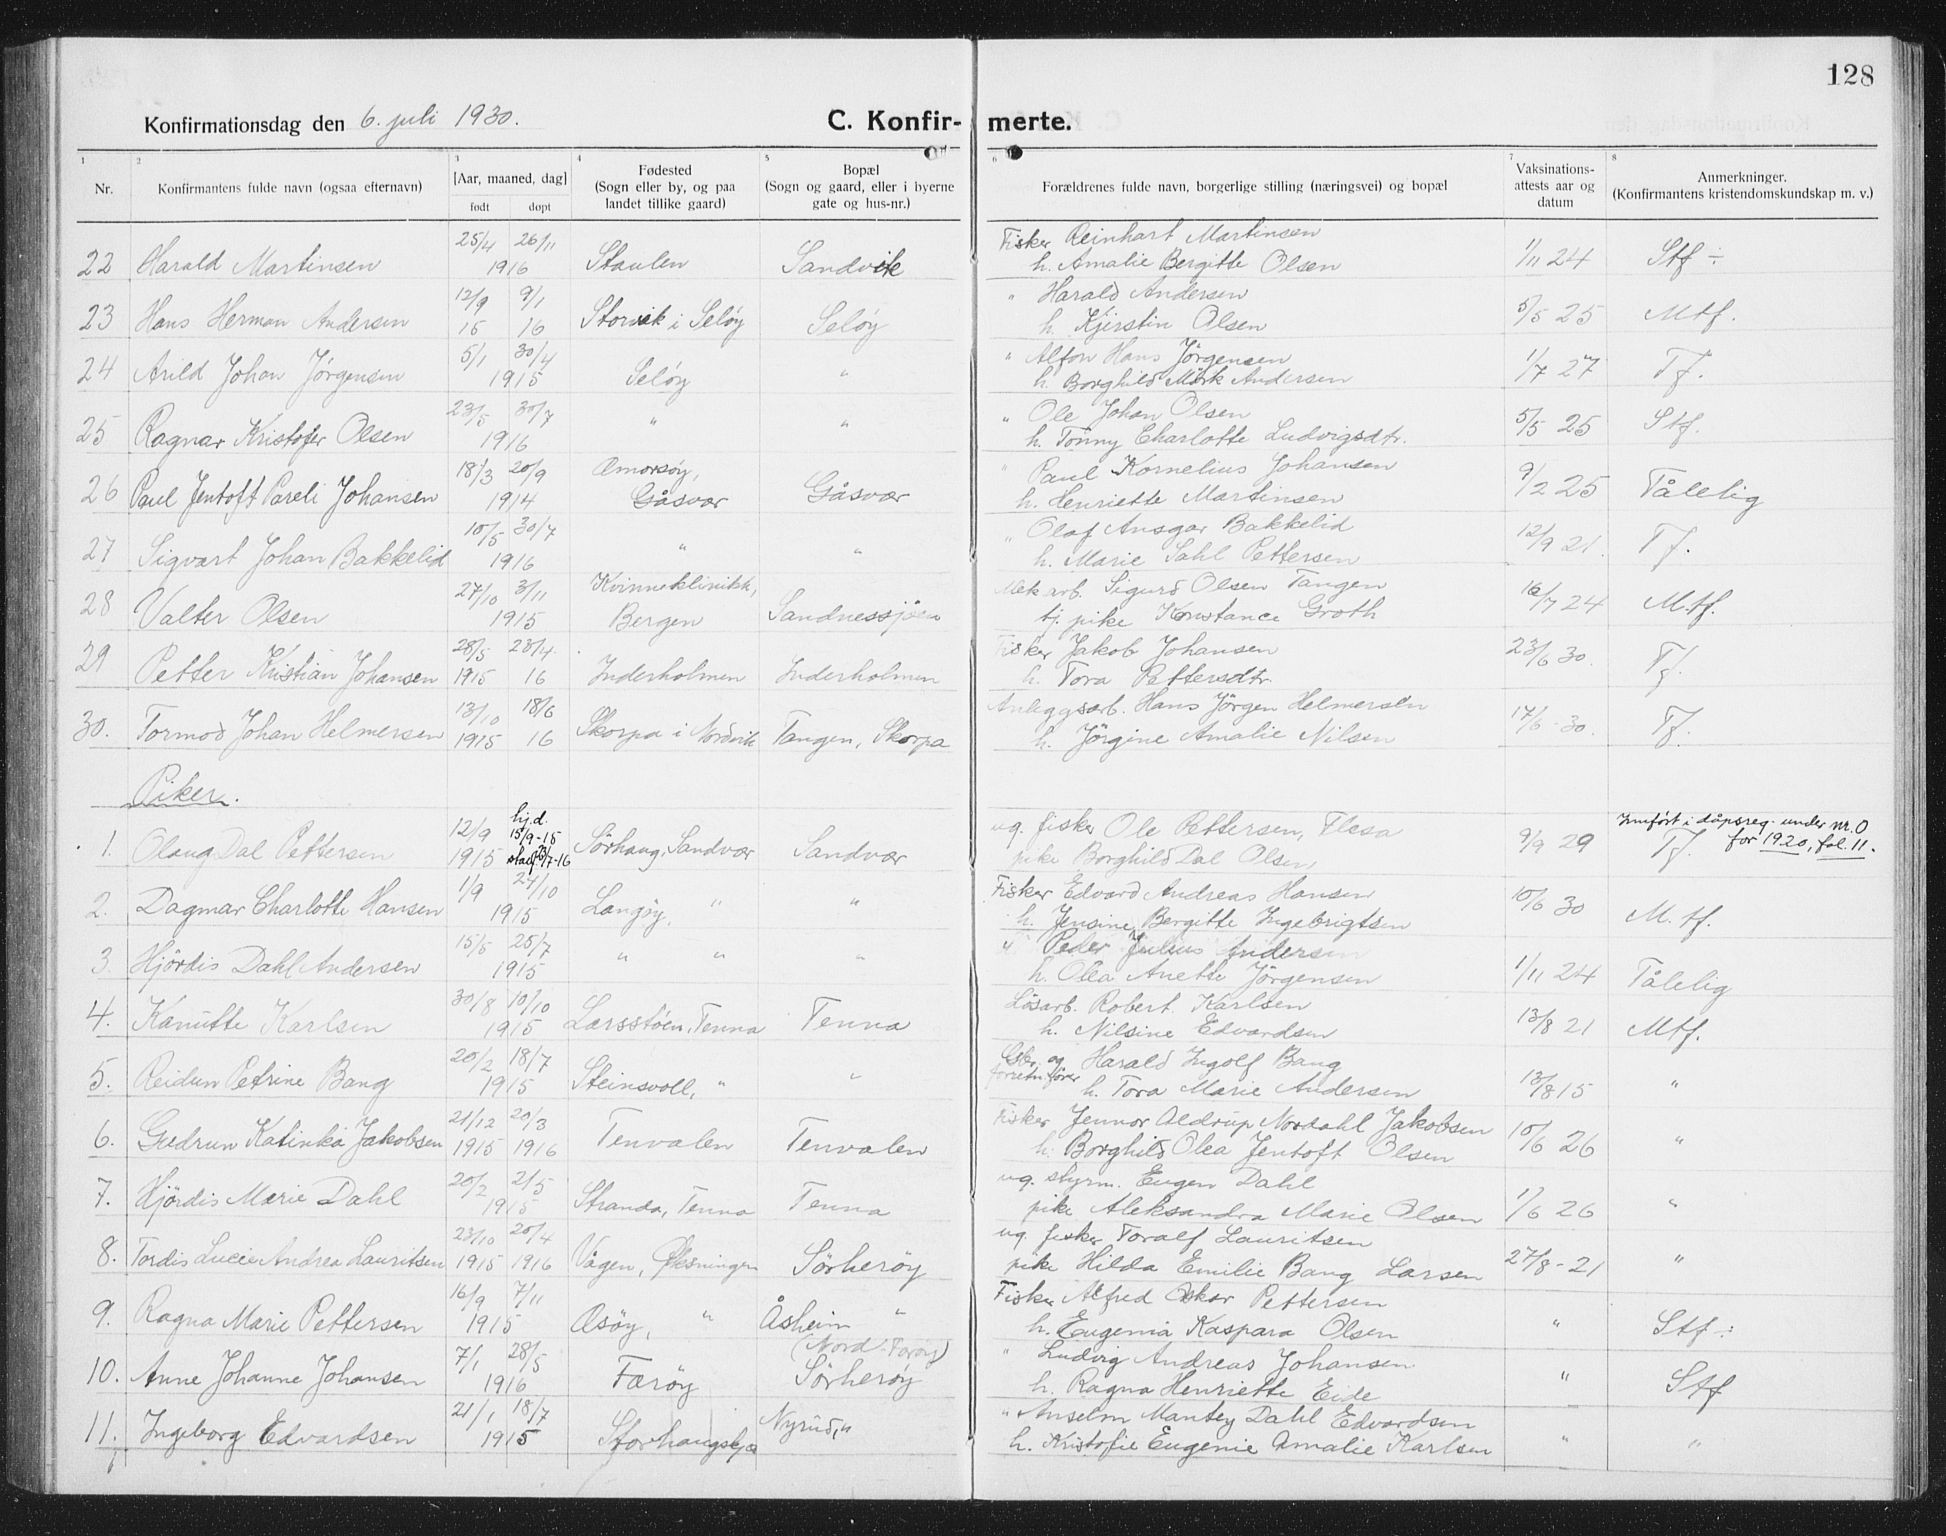 128
Konfirmationsdag den 6. juli 1930. C. Konfir- merte.
1 2 3 4 5 6 7 8
Nr. Konfirmantens fulde navn (ogsaa efternavn) [Aar, maaned, dag] født døpt Fødested (Sogn eller by, og paa landet tillike gaard) Bopæl (Sogn og gaard, eller i byerne gate og hus-nr.) Forældrenes fulde navn, borgerlige stilling (næringsvei) og bopæl Vaksinations-attests aar og datum Anmerkninger. (Konfirmantens kristendomskundskap m. v.)
22 Harald Martinsen 25/4 26/11 1916 Staulen Sandvik Fisker Reinhart Martinsen h. Amalie Bergitte Olsen 1/11 24 Stf ÷
23 Hans Herman Andersen 12/9 15 9/1 16 Storvik i Seløy Seløy " Harald Andersen h. Kjerstin Olsen 5/5 25 Mtf.
24 Arild Johan Jørgensen 5/1 30/4 1915 Seløy " " Alfon Hans Jörgensen h. Borghild Mörk Andersen 1/7 27 Tf.
25 Ragnar Kristofer Olsen 23/5 30/7 1916 " " " Ole Johan Olsen h. Tonny Charlotte Ludvigsdtr. 5/5 25 Stf.
26 Paul Jentoft Pareli Johansen 18/3 20/9 1914 Æmorsøy, Gåsvær Gåsvær " Paul Kornelius Johansen h. Henriette Martinsen 9/2 25 Tålelig
27 Sigvart Johan Bakkelid 10/5 30/7 1916 " " " Olaf Ansgar Bakkelid h. Marie Dahl Pettersen 12/9 21. Tf.
28 Valter Olsen 27/10 3/11 1915 Kvinneklinikk, Bergen Sandnessjøen Mek. arb. Sigurd Olsen Tangen tj. pike Konstance Groth 16/7 24 M.tf.
29 Petter Kristian Johansen 28/5 1915 23/4. 16 Inderholmen Inderholmen Fisker Jakob Johansen h. Tora Pettersdtr. 23/6 30. Tf.
30. Tormod Johan Helmersen 13/10 1915 18/6 16 Skorpa i Nordvik Tangen, Skorpa Anleggsarb. Hans Jörgen Helmersen h. Jörgine Amalie Nilsen 17/6 - 30. Tf.
Piker.
1. Olaug Dal Pettersen 12/9 1915 hj.d. 15/9-15 stadf. 23/7-16 Sørhaug, Sandvær Sandvær ug. fisker Ole Pettersen, Flesa pike Borghild Dal Olsen 9/9 29 Tf. Innført i dåpsreg. under nr. 0 for 1920, fol. 11.
2. Dagmar Charlotte Hansen 1/9 24/10 1915 Langöy, " " Fisker Edvard Andreas Hansen h. Jensine Bergitte Ingebrigtsen 10/6 30 M. tf.
3. Hjördis Dahl Andersen 15/5 25/7 1915 " " " " Peder Julius Andersen h. Olea Anette Jörgensen 1/11 24 Tålelig
4. Kanutte Karlsen 30/8 10/10 1915 Larsstøen, Tenna Tenna Løsarb. Robert Karlsen h. Nilsine Edvardsen 13/8 21 Mtf.
5. Reidun Petrine Bang 20/2 18/7 1915 Steinsvoll, " " Gbr. og forretn.fører Harald Ingolf Bang h. Tora Marie Andersen 13/8 15 "
6. Gudrun Katinka Jakobsen 21/12 1915 20/3 1916 Tenvalen Tenvalen Fisker Jennor Aldrup Nordahl Jakobsen h. Borghild Olea Jentoft Olsen 10/6 26 "
7. Hjördis Marie Dahl 20/2 2/5 1915 Stranda, Tenna Tenna ug. styrm. Eugen Dahl pike Aleksandra Marie Olsen 1/6 26 "
8. Tordis Lucie Andrea Lauritsen 23/10 1915 20/4 1916 Vågen, Øksningen Sörherøy ug. fisker Toralf Lauritsen pike Hilda Emilie Bang Larsen 27/8 - 21 "
9. Ragna Marie Pettersen 16/9 7/11 1915 Æsöy, " Åsheim " (Nord-Farøy) Fisker Alfred Oskar Pettersen h. Eugenia Kaspara Olsen " Stf ÷
10. Anne Johanne Johansen 7/1 28/5 1916 Færöy Sörherøy " Ludvig Andreas Johansen h. Ragna Henriette Eide " Stf
11. Ingeborg Edvardsen 21/1 18/7 1915 Storhaugskjæ Nyrud, " " Anselm Mantey Dahl Edvardsen h. Kristofie Eugenie Amalie Karlsen " "